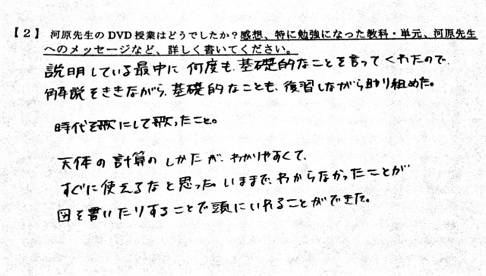 【2】 河原先生のDVD授業はどうでしたか？感想、特に勉強になった教科・単元、河原先生
へのメッセージなど、詳しく書いてください。
説明している最中に何度も、基礎的なことを言ってくれたので、
解説をききながら、基礎的なことも、復習しながら取り組めた。
時代を歌にして歌ったこと。
天体の計算のしかたが、わかりやすくて、
すぐに使えるなと思った。いままで、わからなかったことが
図を書いたりすることで頭にいれることができた。